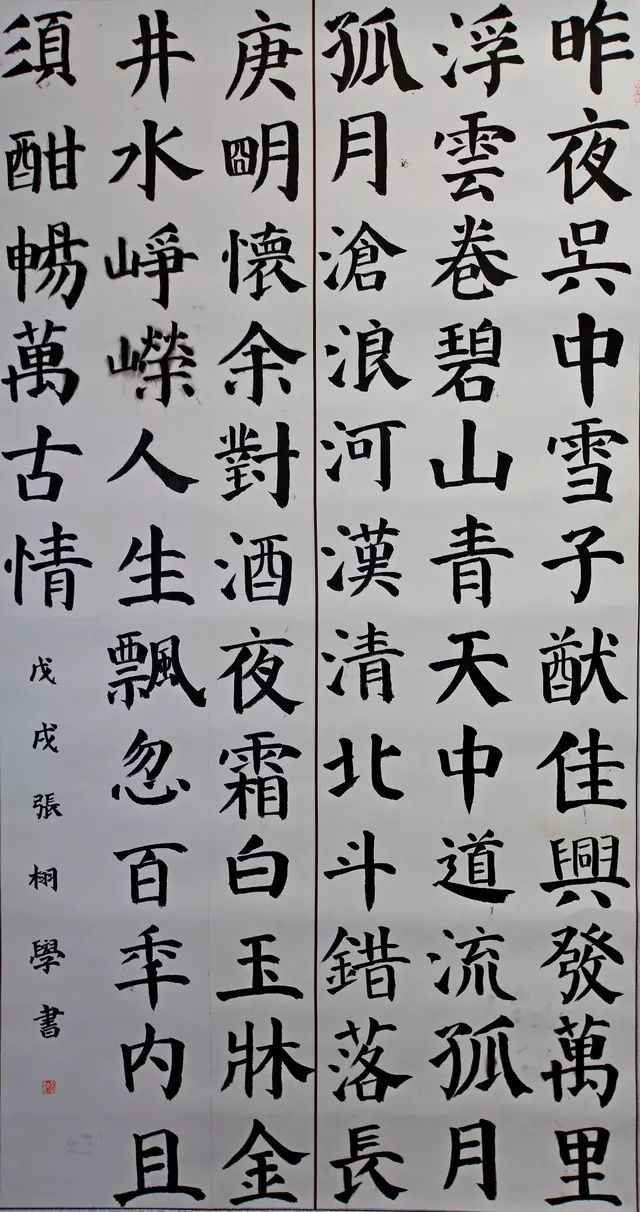 昨夜呉中雪子猷佳興發萬里
浮雲巻碧山青天中道流孤月
孤月滄浪河漢清北斗錯落長
庚朙懷余對酒夜霜白玉牀金
井水崢嶸人生飄忽百年内且
須酣暢萬古情
戊戌張栩學書